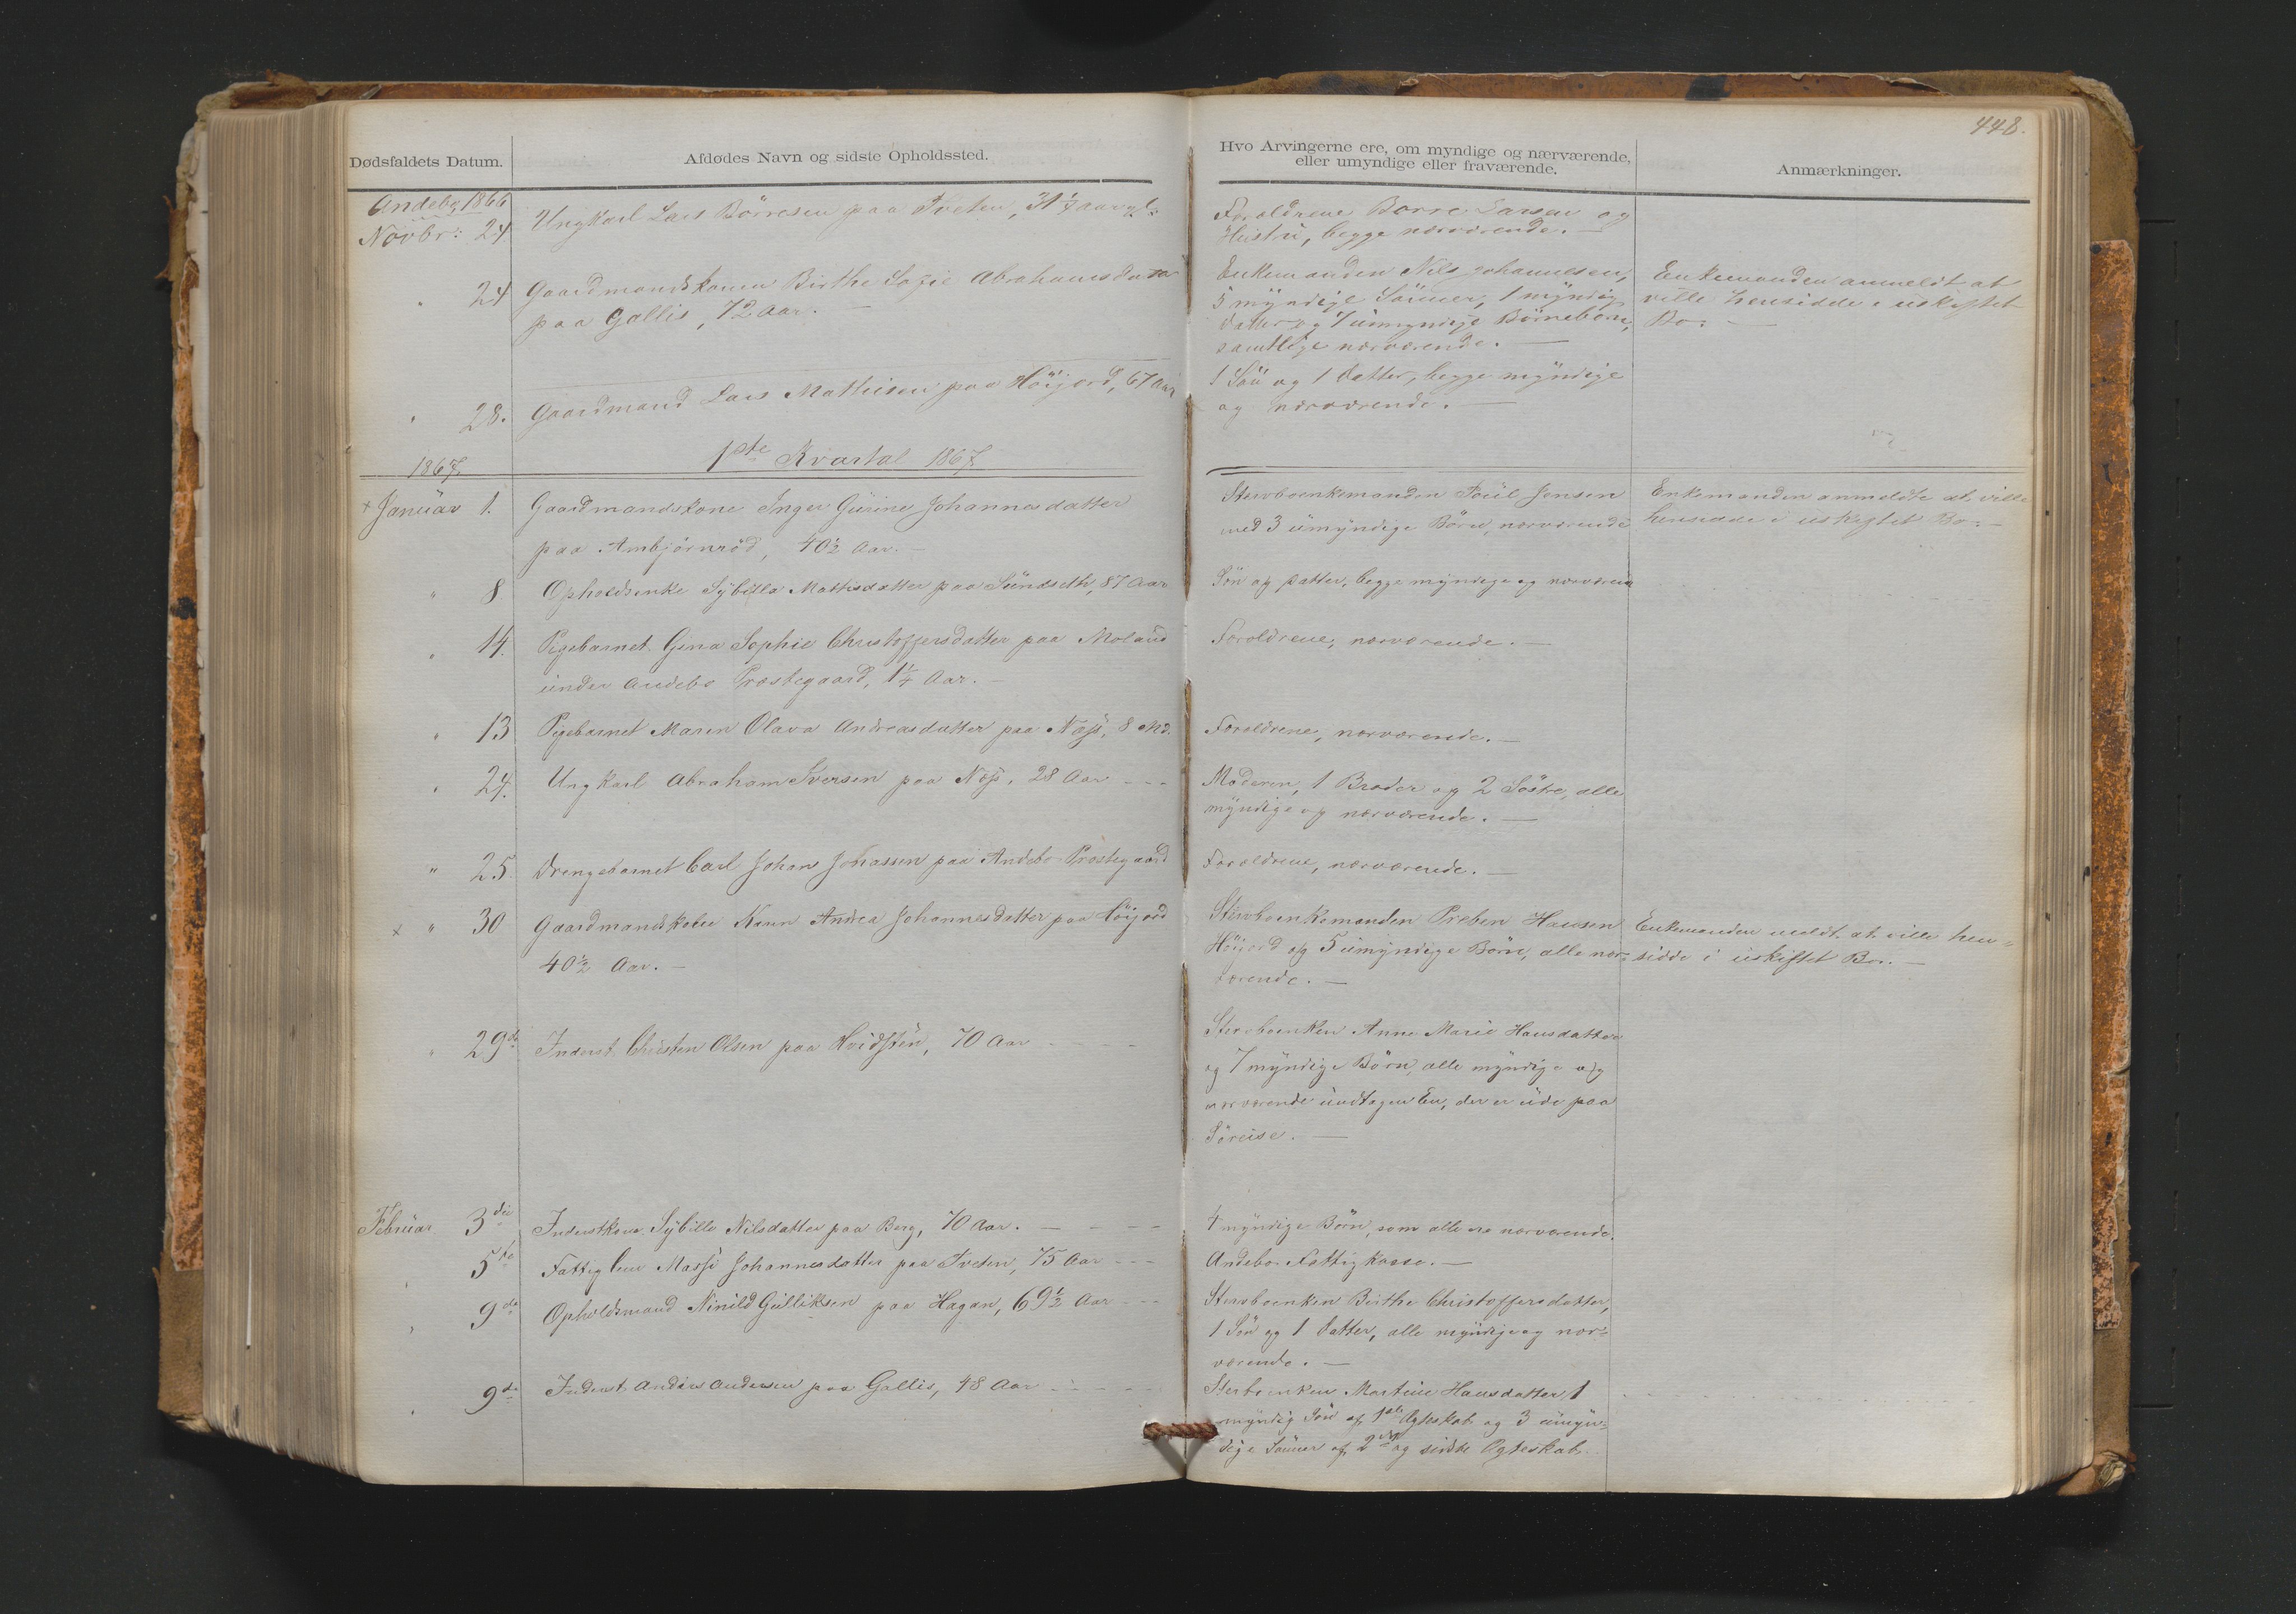 448.
Dødsfaldets Datum.
Afdødes Navn og sidste Opholdssted.
Hvo Arvingerne ere, om myndige og nærværende,
eller umyndige eller fraværende.
Anmærkninger.
Andebo, 1866
Novbr: 24 Ungkarl Lars Börresen paa Tveten, 31 1/4 aar gl:
Foræoldrene Borre Larsen og
Hustrü, begge nærværende. —
" 24 Gaardmandskonen Birthe Sofie Abrahamsdatter
paa Gallis, 72 Aar. —
Enkemanden Nils Johannesen,
5 myndige Sönner, 1 myndig
Datter og 7 ümyndige Börnebörn,
samtlige nærværende. —
Enkemanden anmeldt at
ville hensidde i uskiftet
Bo. —
" 28. Gaardmand Lars Mathisen paa Höijord, 67 Aar
1 Sön og 1 Datter, begge myndige
og nærværende. —
1867. 1ste Kvartal 1867
+ Januar 1. Gaardmandskone Inger Gurine Johannesdatter
paa Ambjörnröd, 40½ Aar. —
Stervboenkemanden Poül Jensen
med 3 ümyndige Börn, nærværende
Enkemanden anmeldte at ville
hensidde i uskiftet Bo. —
" 8 Opholdsenke Sybilla Mathisdatter paa Sündseth, 87 Aar
Sön og Datter, begge myndige og nærværende
" 14. Pigebarnet Gina Sophie Christoffersdatter paa Moland
ünder Andebo Præstegaard, 1¼ Aar. —
Forældrene, nærværende. —
" 13 Pigebarnet Maren Olava Andreasdatter paa Næss, 8 Md.
Forældrene, nærværende. —
" 24. Ungkarl Abraham Iversen paa Næss, 28 Aar - - -
Moderen, 1 Broder og 2 Söstre, alle
myndige og nærværende. —
" 25 Drengebarnet Carl Johan Johassen paa Andebo Præstegaard
Forældrene, nærværende. —
x " 30 Gaardmandskone Karen Andrea Johannesdatter paa Höijord
40½ Aar. —
Stervboenkemanden Preben Hansen
Höijord og 5 ümyndige Börn, alle nær-
værende. —
Enkemanden meldt at ville hen-
sidde i uskiftet Bo. —
" 29de Inderst Christen Olsen paa Hvidsten, 70 Aar - - -
Stervboenken Anne Marie Hansdatter
og 7 myndige Börn, alle myndige og
nærværende ündtagen En, der er üde paa
Söreise. —
Februar 3die Inderstkone Sybille Nilsdatter paa Berg, 70 Aar. — - - -
4 myndige Börn, som alle ere nærværende.
" 5te Fattiglem Massi Johannesdatter paa Tveten, 75 Aar - - -
Andebo Fattigkasse. —
" 9de Opholdsmand Nirild Gülliksen paa Hagan, 69½ Aar - -
Stervboenken Birthe Christoffersdatter,
1 Sön og 1 Datter, alle myndige og nær-
værende. —
" 9de Inderst Anders Andersen paa Gallis, 48 Aar - - - -
Sterboenken Martine Hansdatter 1
myndig Sön af 1ste Ægteskab og 3 ümyn-
dige Sönner af 2det og sidste Ægteskab.